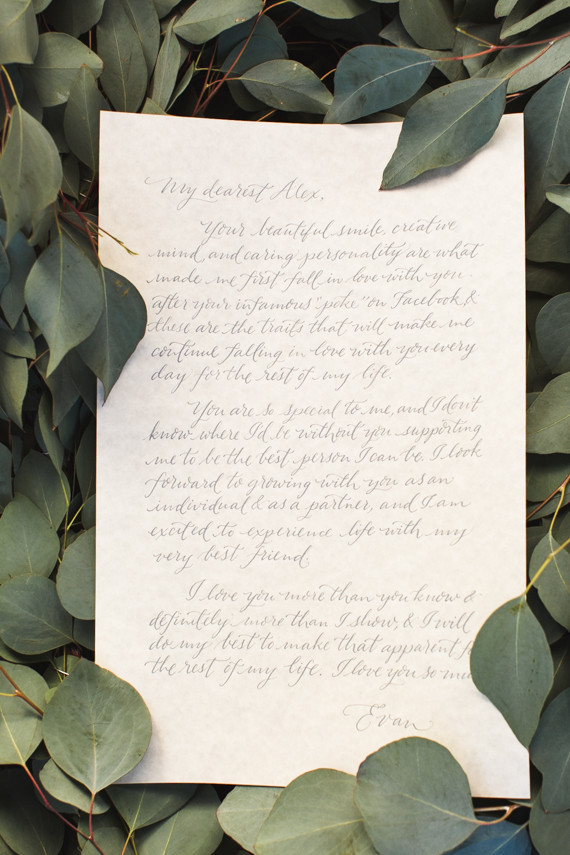 My dearest Alex,
Your beautiful smile, creative
mind and caring personality are what
made me first fall in love with you
after your infamous "poke" on Facebook &
these are the traits that will make me
continue falling in love with you every
day for the rest of my life.
You are so special to me, and I don't
know where I'd be without you supporting
me to be the best person I can be. I look
forward to growing with you as an
individual & as a partner, and I am
excited to experience life with my
very best friend.
I love you more than you know &
definitely more than I show, & I will
do my best to make that apparent f
the rest of my life. I love you so mu
Evan